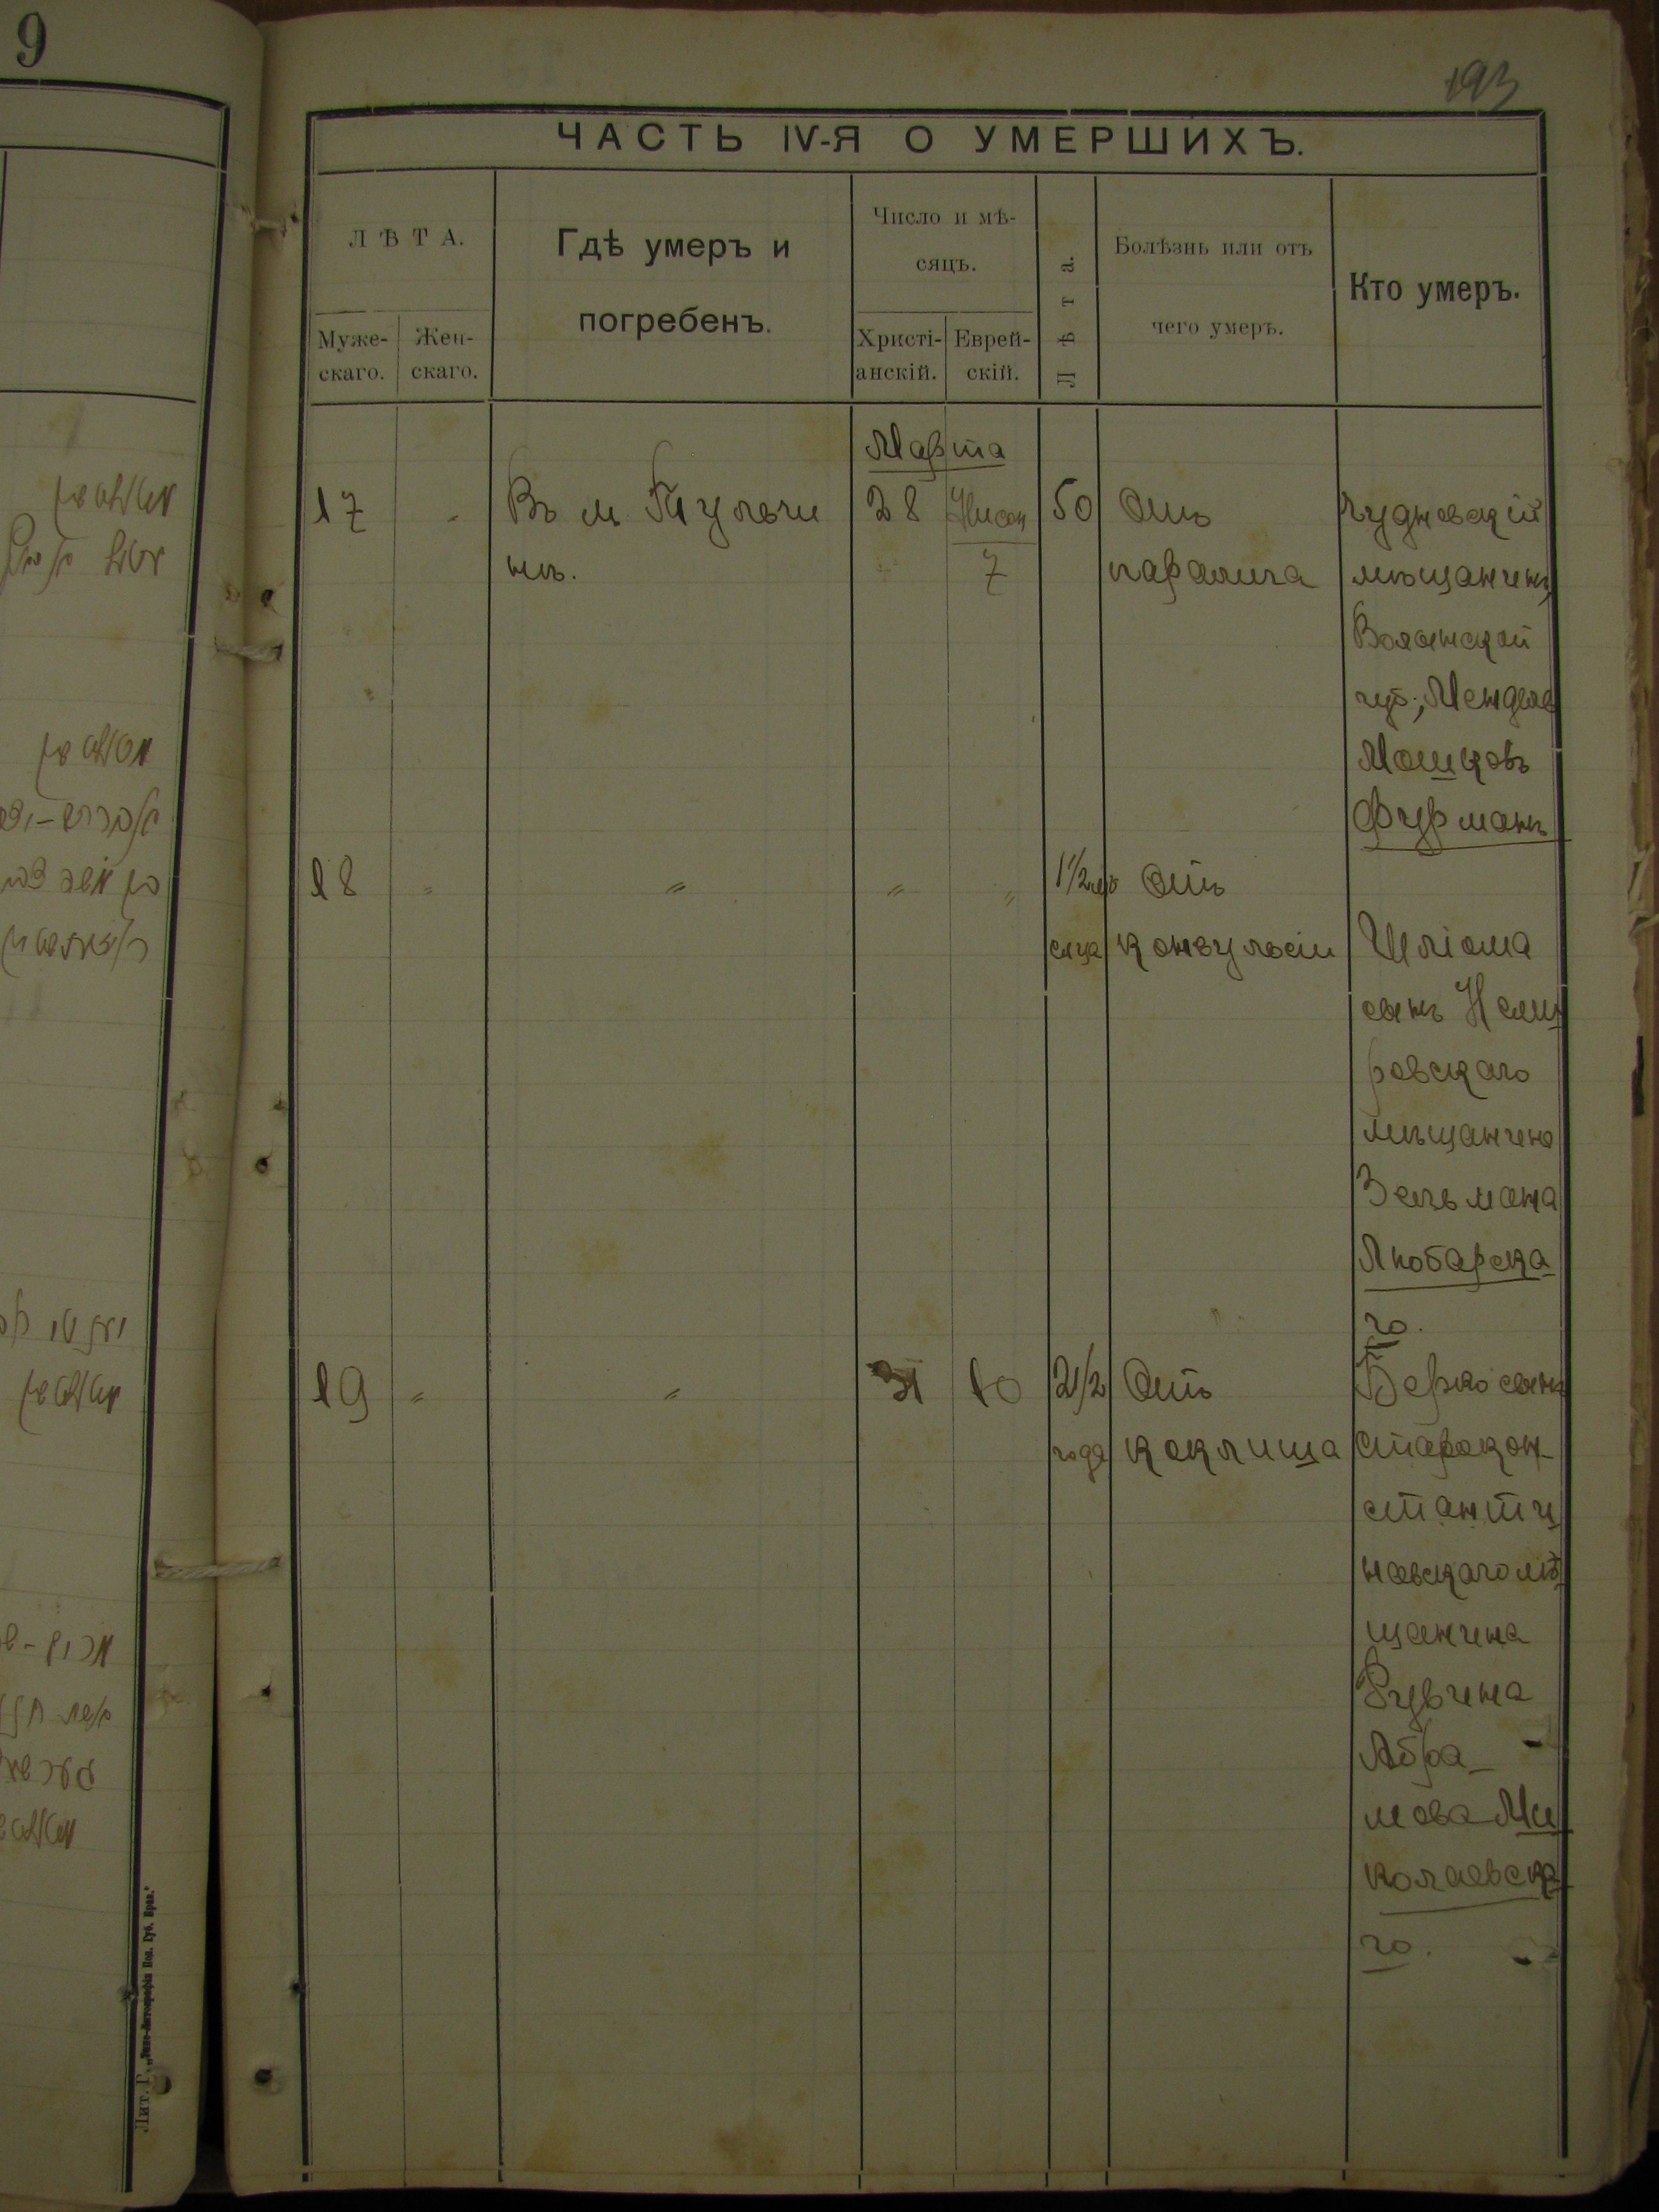 9
193
ЧАСТЬ IV-Я О УМЕРШИХЪ.
ЛѢТА.
Муже-
скаго.
Жен-
скаго.
Гдѣ умеръ и
погребенъ.
Число и мѣ-
сяцъ.
Христі-
анскій.
Еврей-
скій.
Лѣта.
Болѣзнь или отъ
чего умеръ.
Кто умеръ.
Марта
17 Въ м. Тульчи 28 Нисон 50 Отъ Чудновскій
нѣ. 7 паралича мѣщанинъ,
Волынской
губ., Мендель
Мошковъ
Фурманъ
18 " " " " 1½ мѣ Отъ
сяца конвульсіи Шліома
сынъ Неми
ровскаго
мѣщанина
Зельмана
Любарска
го.
19 " " 31 10 2½ Отъ Берко сынъ
года коклюша Старокон-
станти
новскаго мѣ
щанина
Рувина
Абра-
мова Ми
колаевска
го.
Лит. Г.